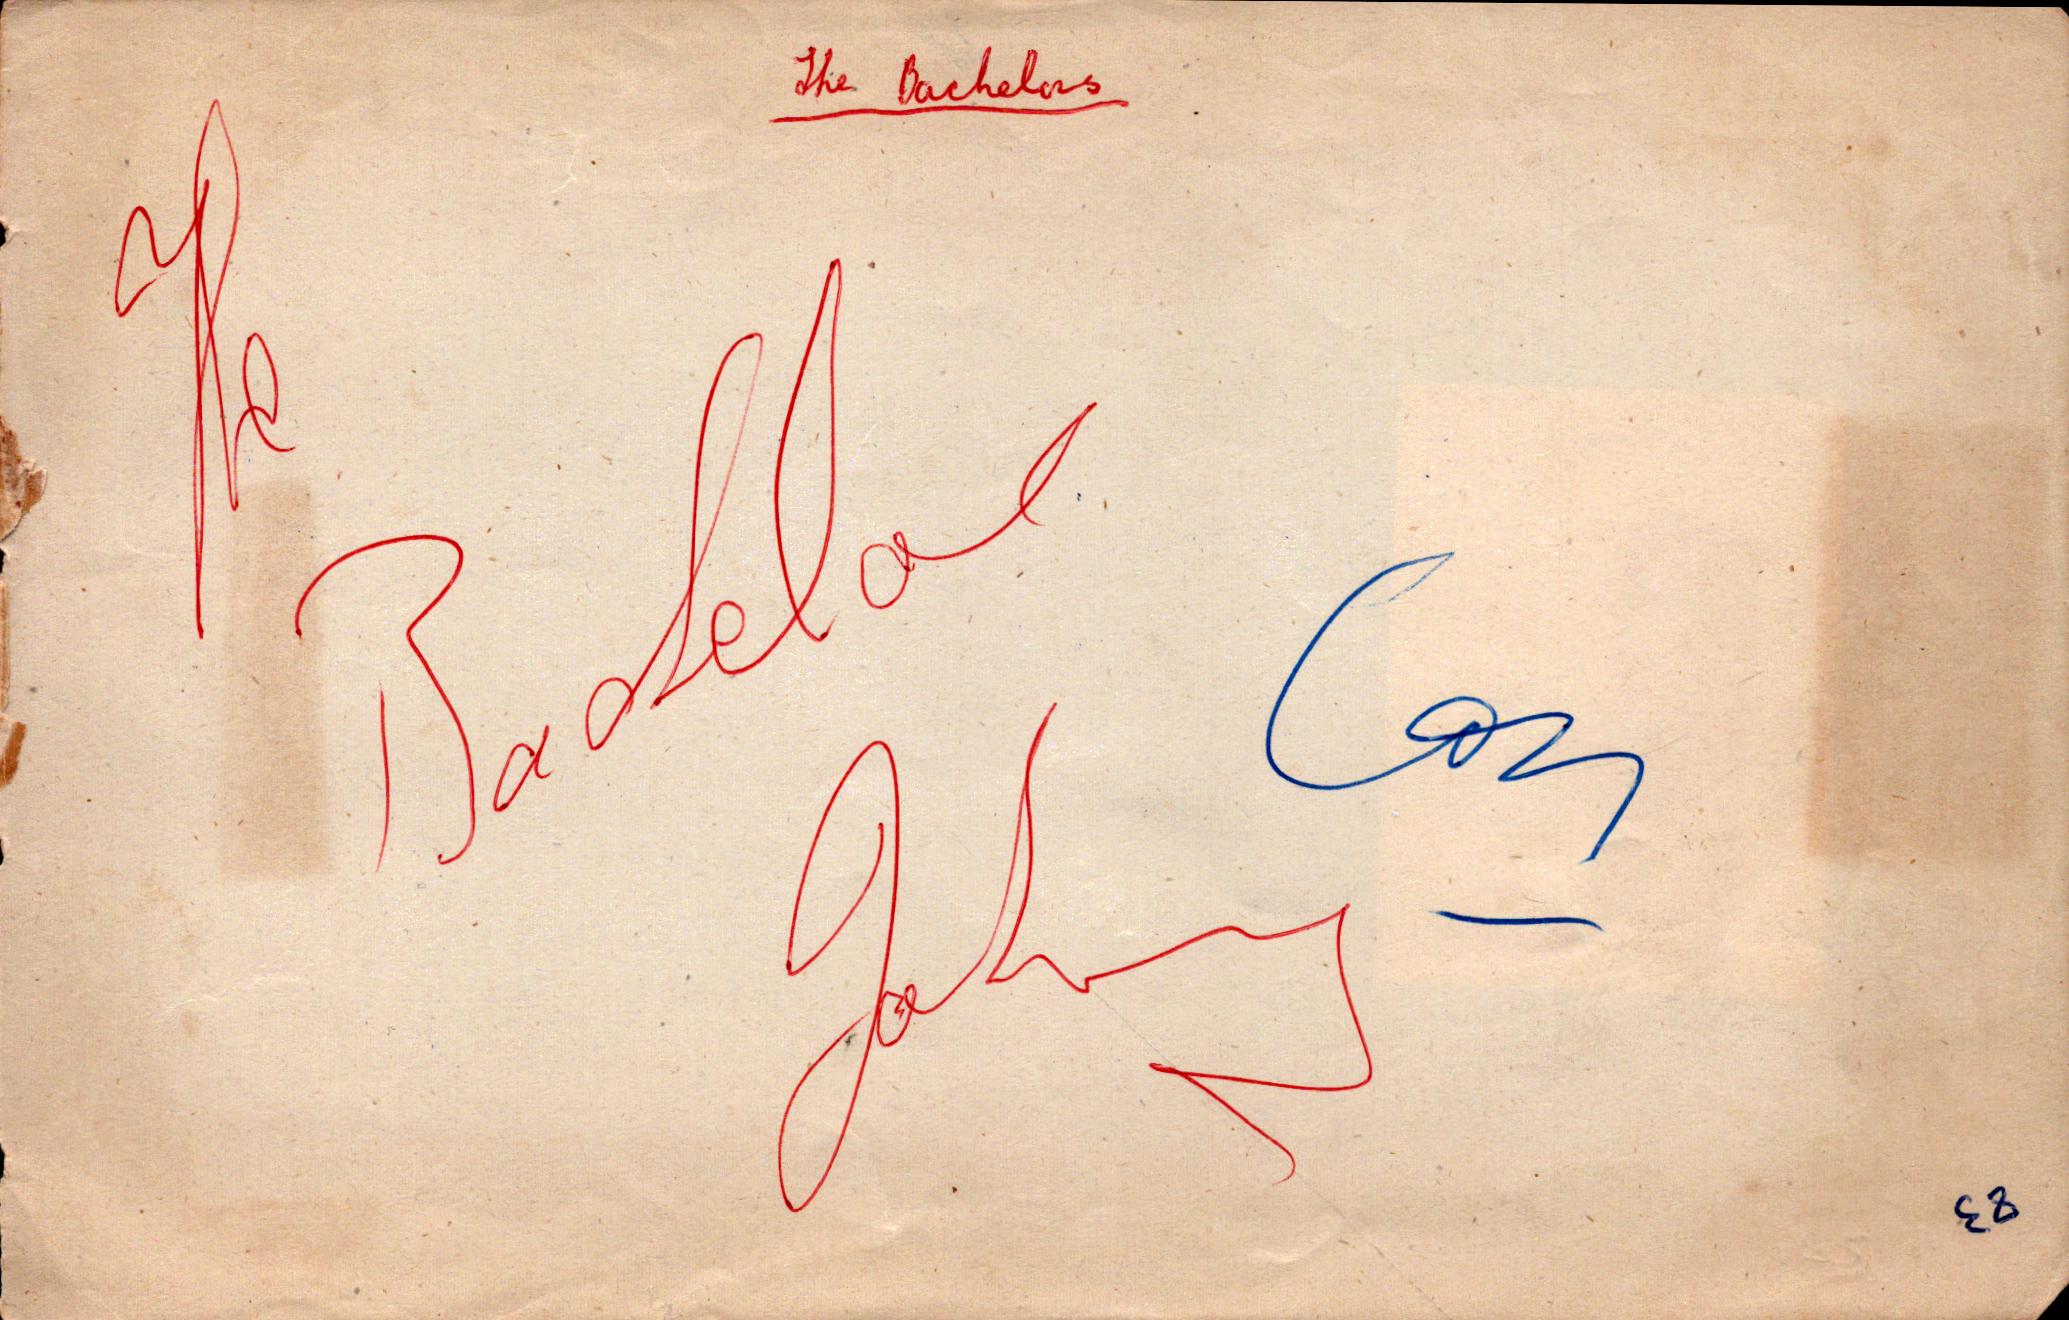 The Bachelors
The
Bachelors
Johnny
Con
83